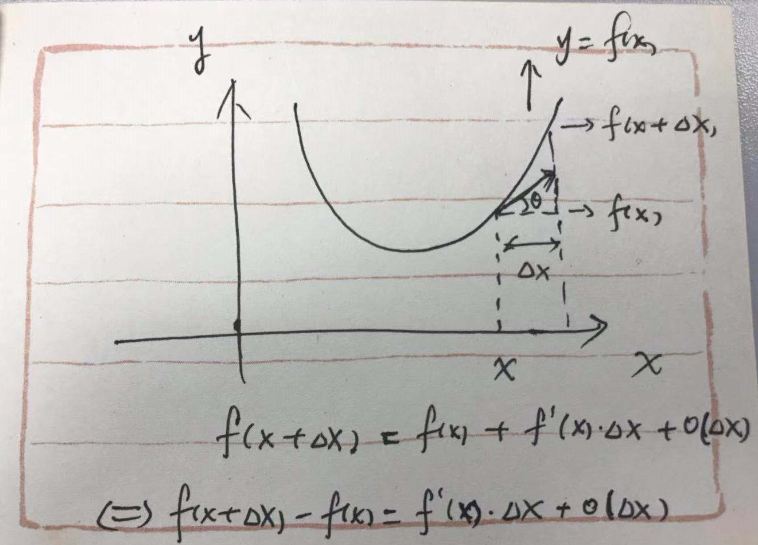 y
y = f(x)
→ f(x + Δx)
θ
→ f(x)
Δx
x
x
f(x + Δx) = f(x) + f'(x)·Δx + o(Δx)
(=) f(x+Δx) - f(x) = f'(x)·Δx + o(Δx)